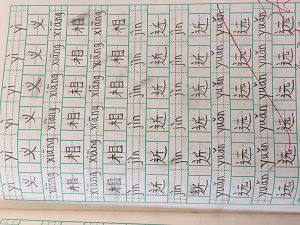 yì yì yì yì yì yì
义 义 义 义 义 义
xiāng xiāng xiāng xiāng xiāng xiāng
相 相 相 相 相 相
xiāng xiāng xiāng xiāng xiāng xiāng
相 相 相 相 相 相
jìn jìn jìn jìn jìn jìn
近 近 近 近 近 近
jìn jìn jìn jìn jìn jìn
近 近 近 近 近 近
yuǎn yuǎn yuǎn yuǎn yuǎn yuǎn
远 远 远 远 远 远
yuǎn yuǎn yuǎn yuǎn yuǎn yuǎn
远 远 远 远 远 远